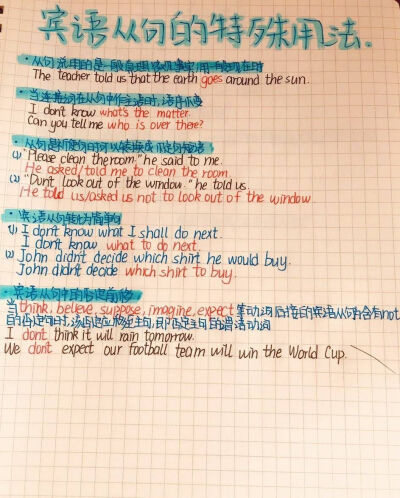 宾语从句的特殊用法.
· 从句说明的是一般真理或客观事实用一般现在时
The teacher told us that the earth goes around the sun.
· 当连接词在从句中作主语时,语序不变
I don't know what's the matter.
Can you tell me who is over there?
· 从句是祈使句时可以转换成不定句短语
(1) "Please clean the room." he said to me.
He asked/told me to clean the room.
(2) "Don't look out of the window." he told us.
He told us/asked us not to look out of the window.
· 宾语从句转化为简单句
(1) I don't know what I shall do next.
I don't know what to do next.
(2) John didn't decide which shirt he would buy.
John didn't decide which shirt to buy.
· 宾语从句中的否定前移
当think, believe, suppose, imagine, expect 等动词后接的宾语从句含有not
的否定句时,该否定应移至主句,即否定主句的谓语动词
I don't think it will rain tomorrow.
We don't expect our football team will win the World Cup.